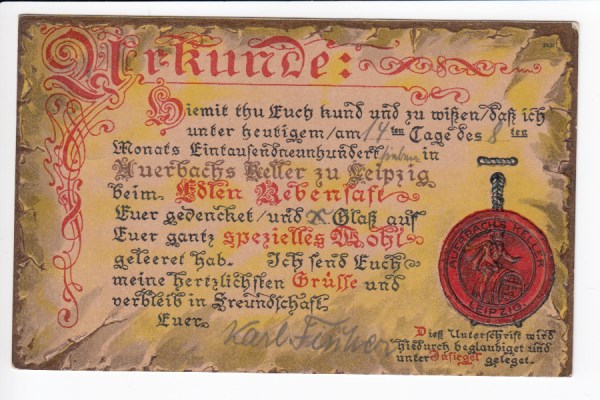 Urkunde:
Hiemit thu Euch kund und zu wißen/daß ich
unter heutigem/am 14ten Tage des 8ten
Monats Eintausendneunhundert sieben in
Auerbachs Keller zu Leipzig
beim Edlen Rebensaft
Euer gedencket/und X Glaß auf
Euer gantz spezielles Wohl
geleeret hab. Ich send Euch
meine hertzlichsten Grüsse und
verbleib in Freundschaft
Euer
Karl
AUERBACHS KELLER
LEIPZIG
Dieß Unterschrift wird
hiedurch beglaubiget und
unter Insiegel geleget.